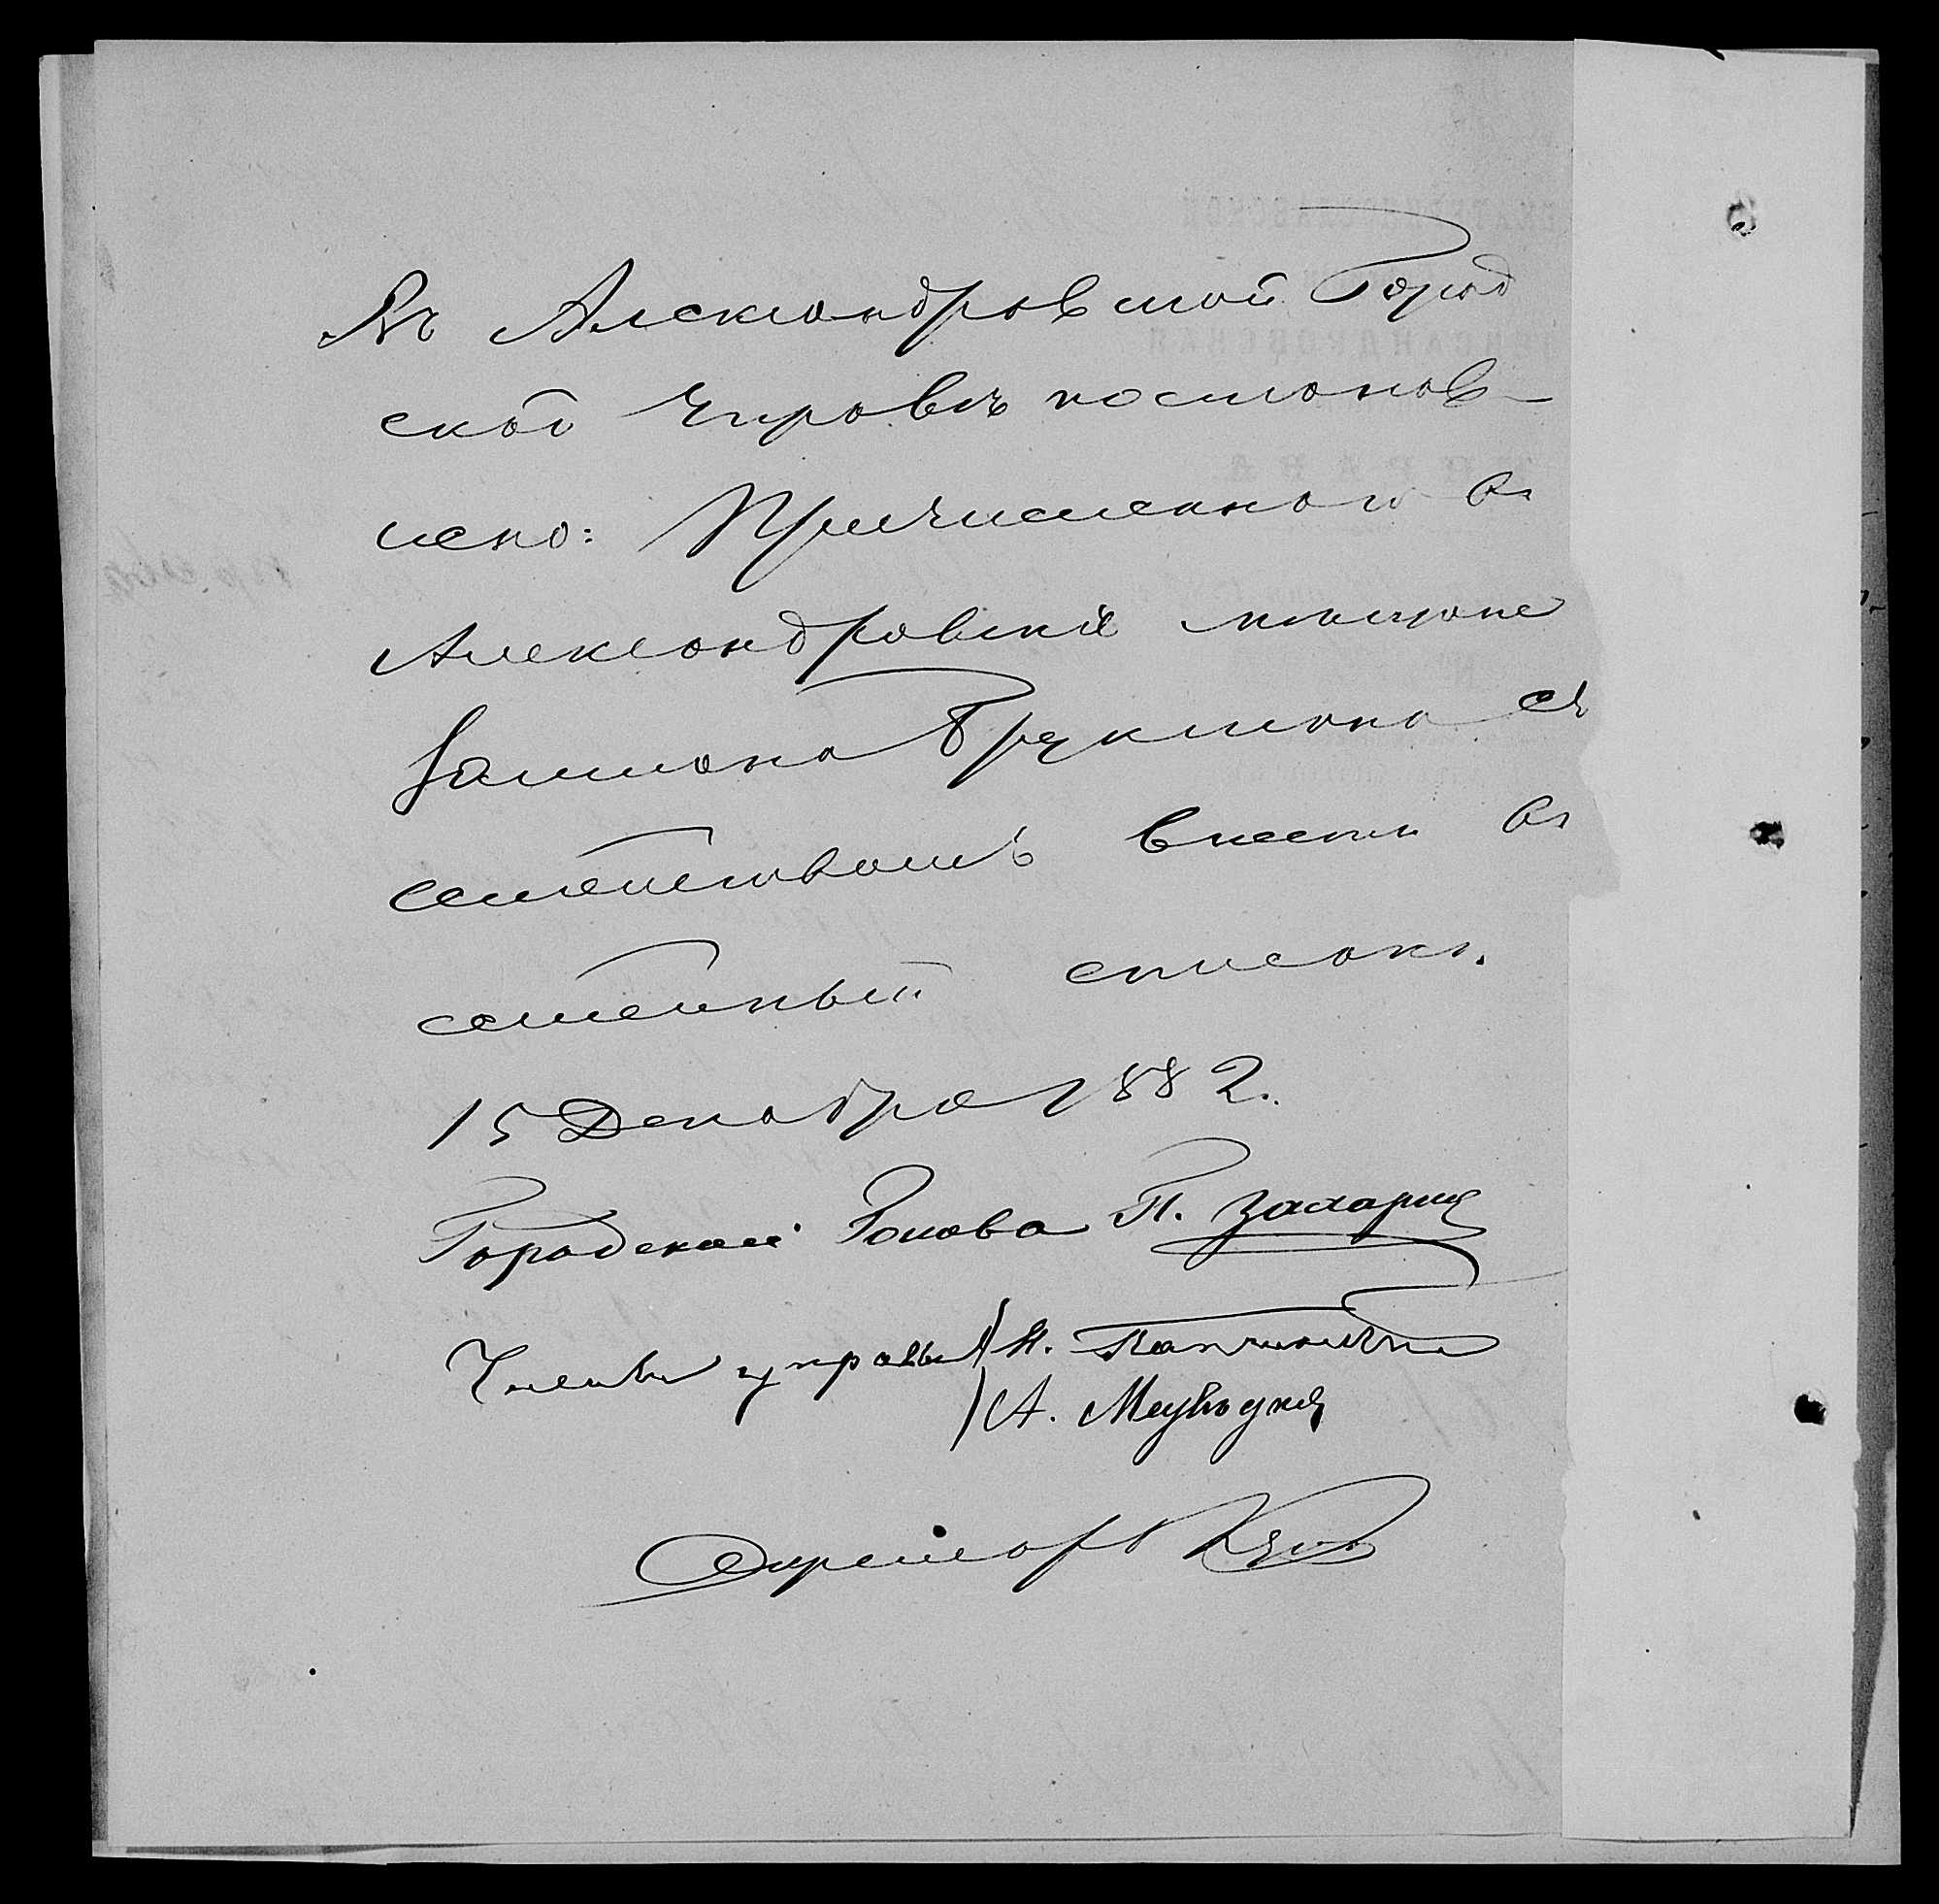 Въ Александровской Город
ской Управѣ постанов-
лено: Причисленного въ
Александровскіе мѣщане
Брукмана съ
семействомъ внести въ
семейный списокъ.
15 Декабря 1882.
Городской Голова П. Захарин
Члены управы Н.
А.
Секретарь